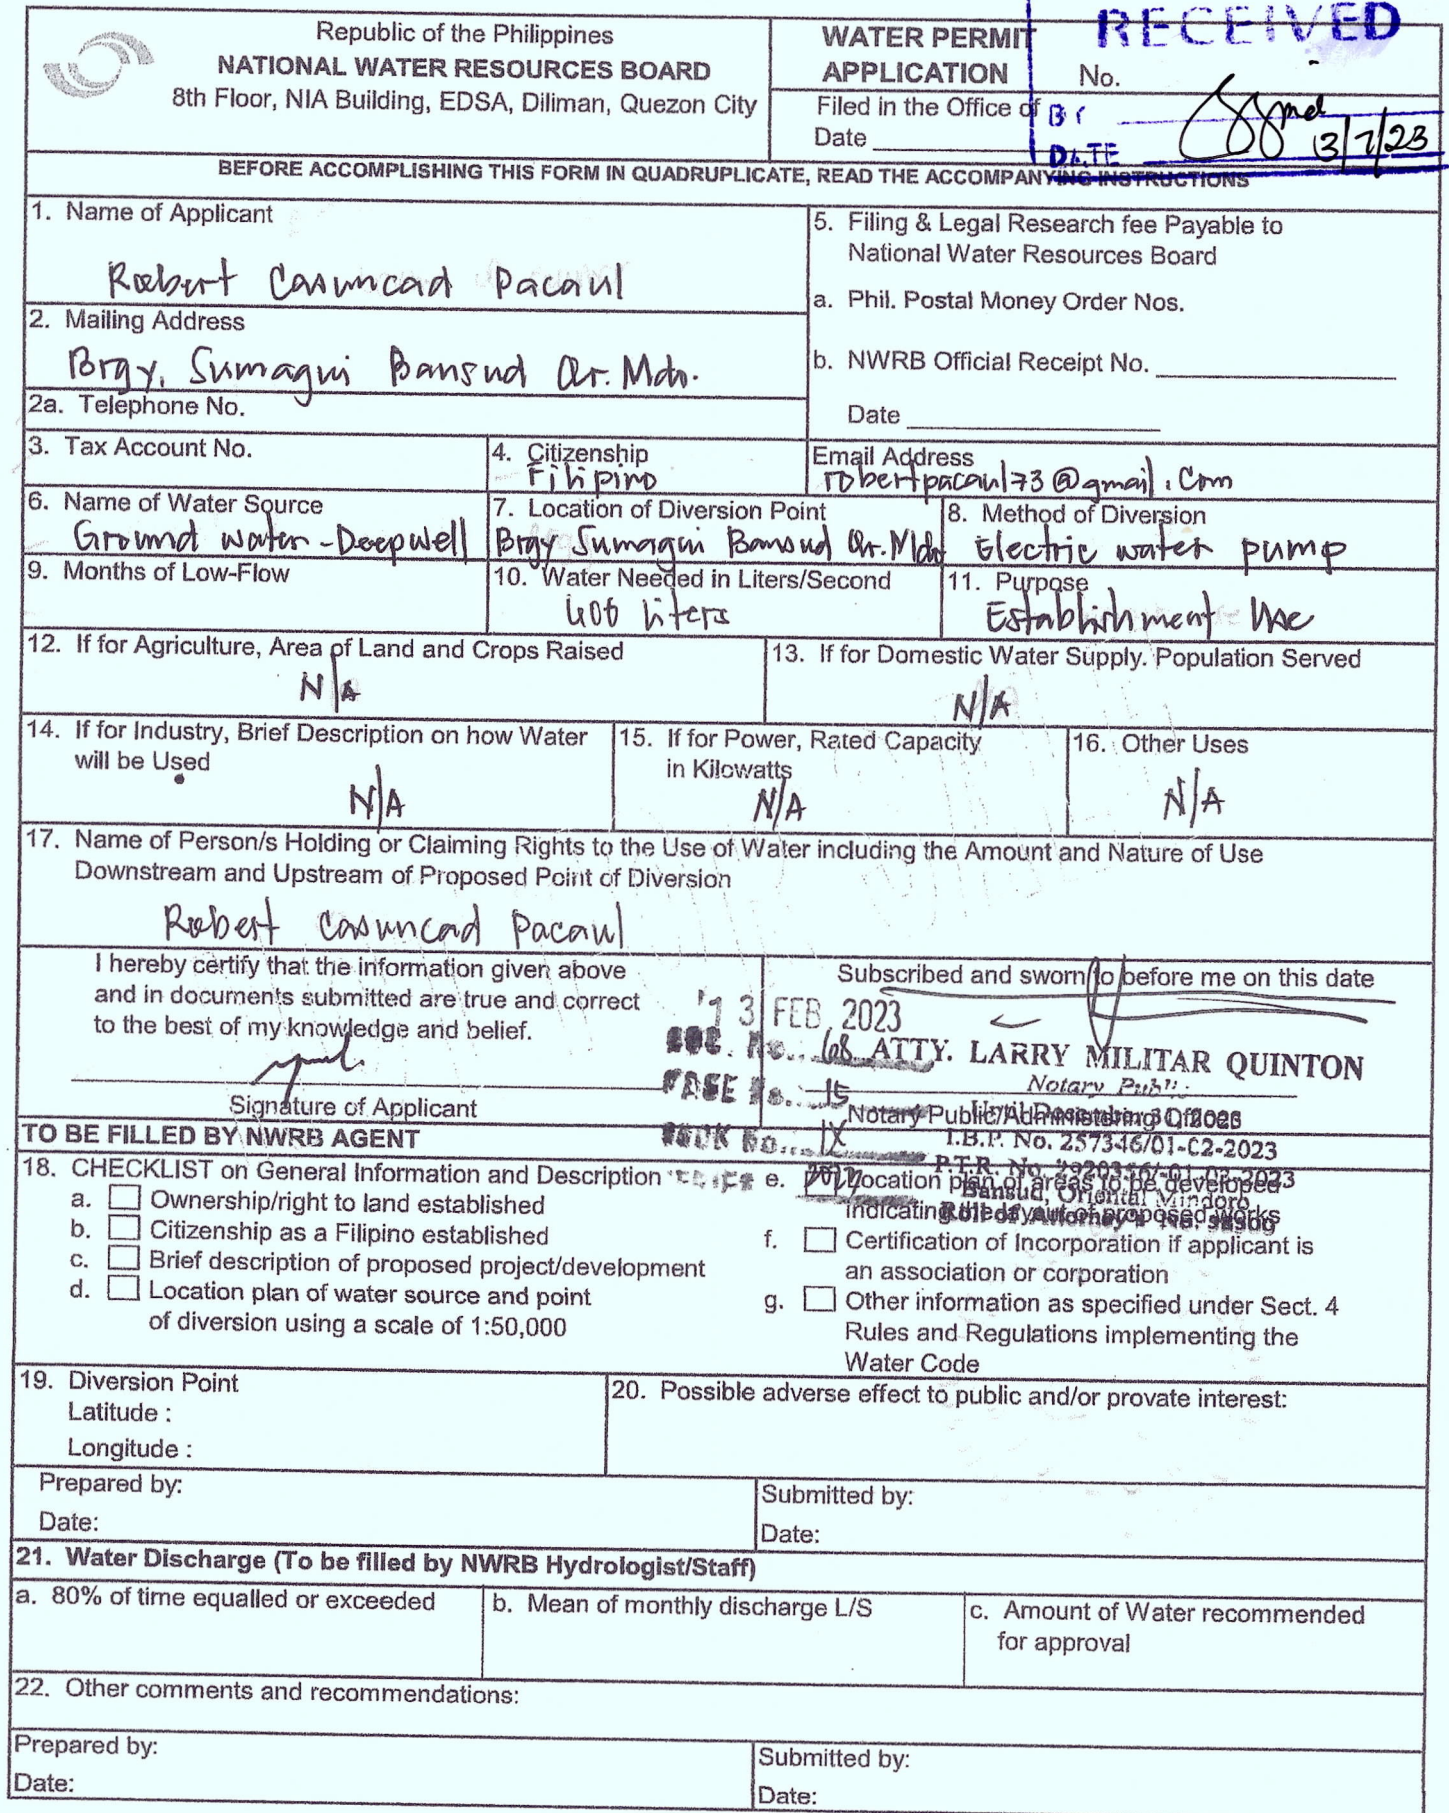 RECEIVED
Republic of the Philippines
NATIONAL WATER RESOURCES BOARD
8th Floor, NIA Building, EDSA, Diliman, Quezon City
WATER PERMIT
APPLICATION
No.
Filed in the Office of
Date
BY
DATE 3/7/23
BEFORE ACCOMPLISHING THIS FORM IN QUADRUPLICATE, READ THE ACCOMPANYING INSTRUCTIONS
1. Name of Applicant
Robert Casuncad Pacaul
2. Mailing Address
Brgy. Sumagui Bansud Or. Mdo.
2a. Telephone No.
5. Filing & Legal Research fee Payable to
National Water Resources Board
a. Phil. Postal Money Order Nos.
b. NWRB Official Receipt No.
Date
3. Tax Account No.
4. Citizenship
Filipino
Email Address
robertpacaul73@gmail.com
6. Name of Water Source
Ground water - Deepwell
7. Location of Diversion Point
Brgy Sumagui Bansud Or. Mdo
8. Method of Diversion
Electric water pump
9. Months of Low-Flow
10. Water Needed in Liters/Second
liters
11. Purpose
Establishment Use
12. If for Agriculture, Area of Land and Crops Raised
N/A
13. If for Domestic Water Supply. Population Served
N/A
14. If for Industry, Brief Description on how Water
will be Used
N/A
15. If for Power, Rated Capacity
in Kilowatts
N/A
16. Other Uses
N/A
17. Name of Person/s Holding or Claiming Rights to the Use of Water including the Amount and Nature of Use
Downstream and Upstream of Proposed Point of Diversion
Robert Casuncad Pacaul
I hereby certify that the information given above
and in documents submitted are true and correct
to the best of my knowledge and belief.
Signature of Applicant
Subscribed and sworn to before me on this date
13 FEB 2023
DOC. No. 68
PAGE No. 15
BOOK No. IX
ATTY. LARRY MILITAR QUINTON
Notary Public
Notary Public/Administering Officer
I.B.P. No. 257346/01-C2-2023
P.T.R. No.
Bansud, Oriental Mindoro
TO BE FILLED BY NWRB AGENT
18. CHECKLIST on General Information and Description
a. Ownership/right to land established
b. Citizenship as a Filipino established
c. Brief description of proposed project/development
d. Location plan of water source and point
of diversion using a scale of 1:50,000
e. Location plan of areas to be developed
indicating the layout of proposed works
f. Certification of Incorporation if applicant is
an association or corporation
g. Other information as specified under Sect. 4
Rules and Regulations implementing the
Water Code
19. Diversion Point
Latitude :
Longitude :
20. Possible adverse effect to public and/or provate interest:
Prepared by:
Date:
Submitted by:
Date:
21. Water Discharge (To be filled by NWRB Hydrologist/Staff)
a. 80% of time equalled or exceeded
b. Mean of monthly discharge L/S
c. Amount of Water recommended
for approval
22. Other comments and recommendations:
Prepared by:
Date:
Submitted by:
Date: